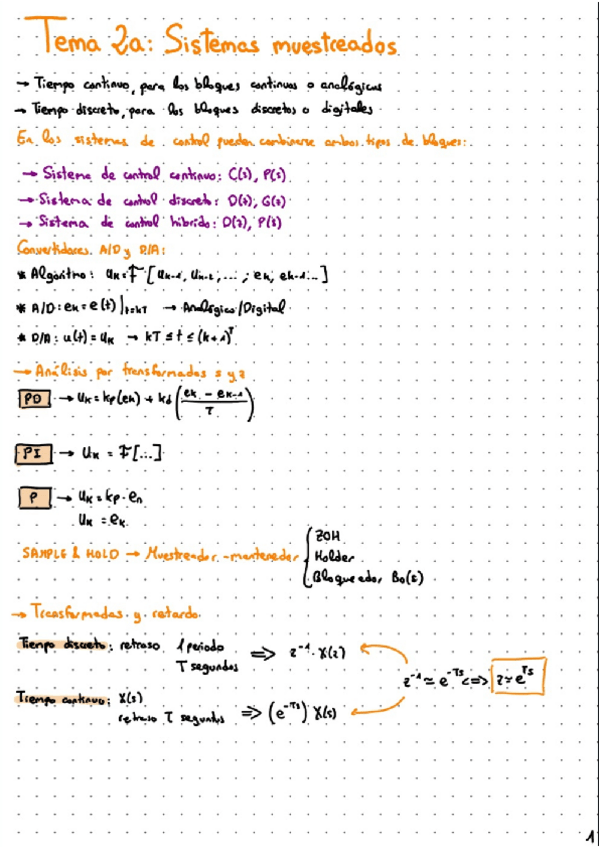 Tema 2a: Sistemas muestreados
→ Tiempo continuo, para los bloques continuos o analógicos
→ Tiempo discreto, para los bloques discretos o digitales
En los sistemas de control pueden combinarse ambos tipos de bloques:
→ Sistema de control continuo: C(s), P(s)
→ Sistema de control discreto: D(z), G(z)
→ Sistema de control híbrido: D(z), P(s)
Convertidores A/D y D/A:
* Algoritmo: uk = F[uk-1, uk-2, ...; ek, ek-1...]
* A/D: ek = e(t)|t=kT → Analógico/Digital
* D/A: u(t) = uk → kT ≤ t ≤ (k+1)T
→ Análisis por transformadas s y z
PD → uk = kp(ek) + kd((ek - ek-1)/T)
PI → uk = F[...]
P → uk = kp·en
uk = ek
SAMPLE & HOLD → Muestreador-mantenedor { ZOH
Holder
Bloqueador B0(s)
→ Transformadas y retardo
Tiempo discreto: retraso 1 periodo T segundos ⇒ z⁻¹·X(z)
z⁻¹ ≃ e^-Ts <=> z ≃ e^Ts
Tiempo continuo: X(s)
retraso T segundos ⇒ (e^-Ts) X(s)
1